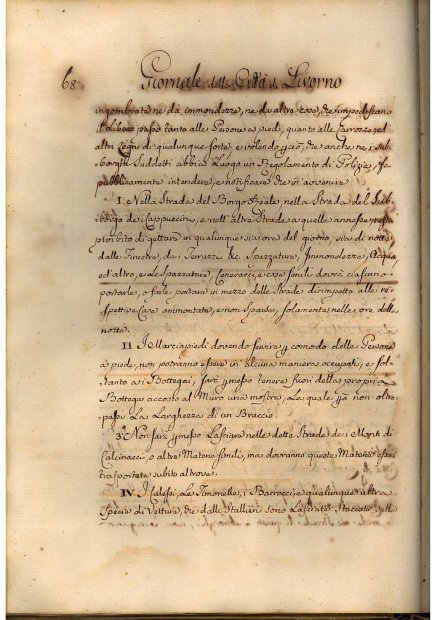 68 Giornale della Città di Livorno
ingombrate ne da immondezze, ne da altre cose, che impediscano
il libero passo tanto alle Persone a piedi, quanto alle Carrozze, ed
altri Legni di qualunque sorte, e volendo che anche nei sub-
borghi Suddetti abbia Luogo un Regolamento di Polizia, fa
pubblicamente intendere, e notificare che in avvenire
I. Nella Strada del Borgo Reale, nella Strada del Sub-
borgo de Cappuccini, e nell'altre Strade a quelle annesse, resta
proibito di gettare in qualunque sia ora del giorno, sia di notte
dalle Finestre, da Terrazze &c. Spazzature, Immondezze, Acqua
ed altro, e le Spazzature, Coneracci, e cose simili dovrà ciascuno
portarle, o farle portare in mezzo delle Strade dirimpetto alle re-
spettive Case ammontate, e non sparse, solamente nelle ore della
notte.
II I Marciapiedi dovendo servire per comodo delle Persone
a piede, non potranno essere in alcuna maniera occupati, e sol-
tanto a i Bottegai, sarà permesso tenere fuori della propria
Bottega accosto al Muro una mostra, La quale però non oltre-
passi La Larghezza di un Braccio.
3.° Non sarà permesso Lasciare nelle dette Strade de i Monti di
Calcinacci, o altre Materie simili, ma dovranno queste Materie essere
trasportate subito altrove.
IV. I Calessi, Le Timonelle, i Barrocci, e qualunque altra
Specie di Vettura, che dalli Stallieri sono Lasciate Staccate sulle